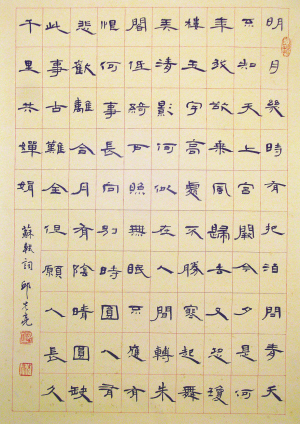 明月幾時有把酒問青天
不知天上宮闕今夕是何
年我欲乘風歸去又恐瓊
樓玉宇高處不勝寒起舞
弄清影何似在人間轉朱
閣低綺戶照無眠不應有
恨何事長向別時圓人有
悲歡離合月有陰晴圓缺
此事古難全但願人長久
千里共嬋娟
蘇軾詞 邱